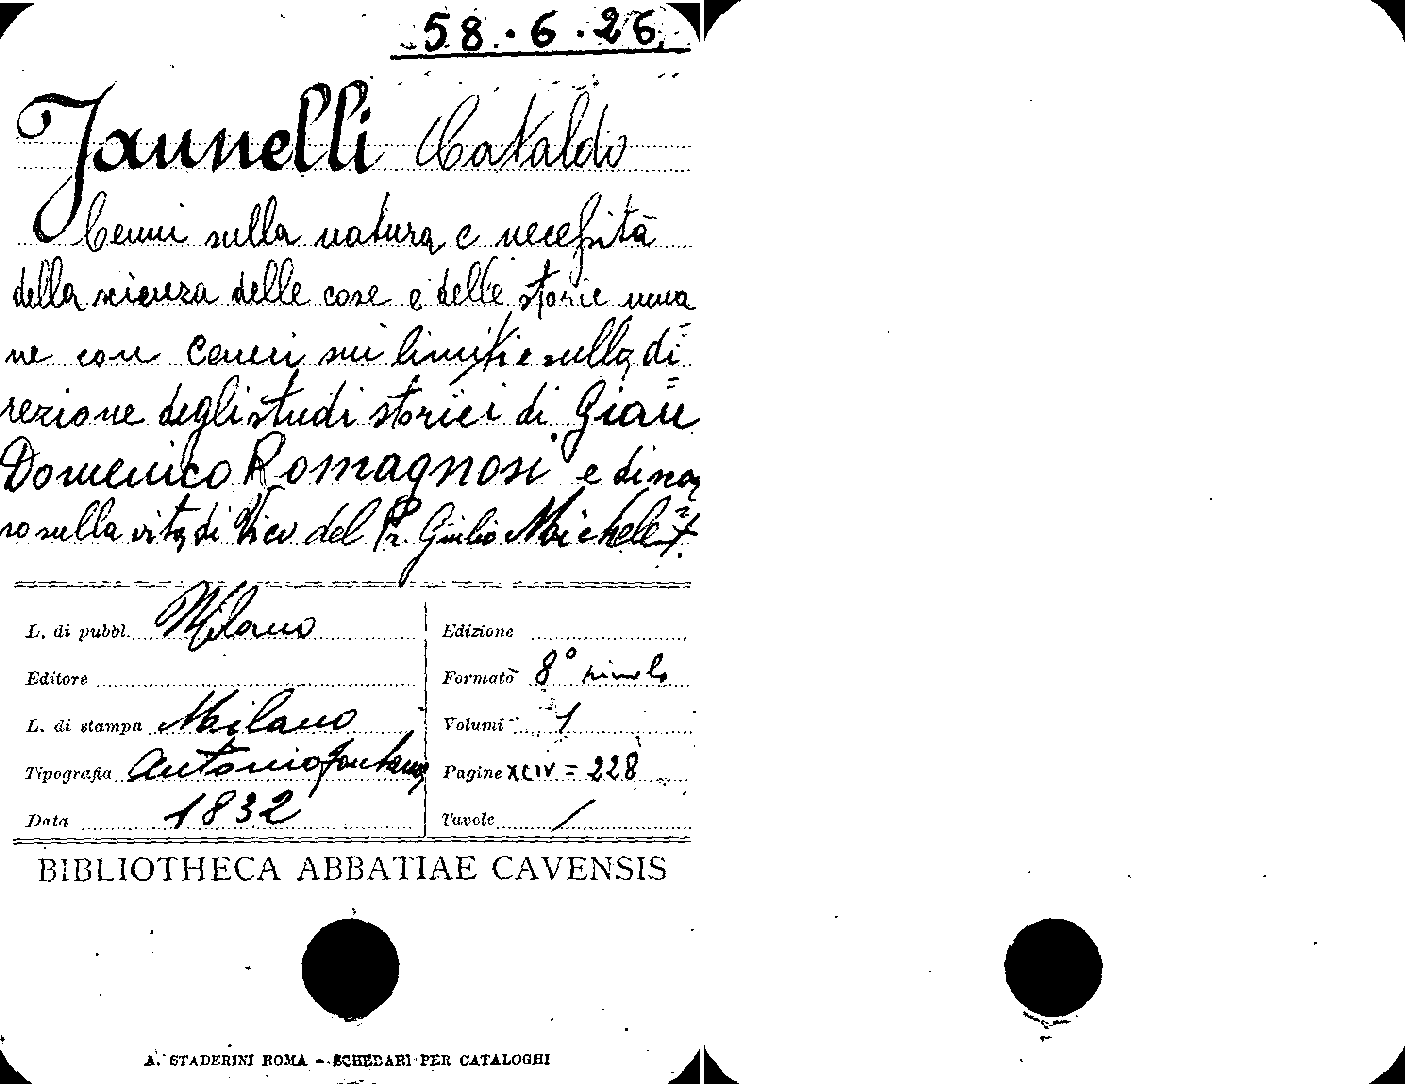 58.6.26
Jannelli Cataldo
Cenni sulla natura e necessità
della scienza delle cose e delle storie uma=
ne con cenni sui limiti e sulla di=
rezione degli studi storici di Gian
Domenico Romagnosi e discor=
so sulla vita di Vico del Pr. Giulio Michelet.
L. di pubbl. Milano
Editore
L. di stampa Milano
Tipografia Antonio Fontana
Data 1832
Edizione
Formato 8° piccolo
Volumi 1
Pagine XCIV = 228
Tavole /
BIBLIOTHECA ABBATIAE CAVENSIS
A. STADERINI ROMA - SCHEDARI PER CATALOGHI